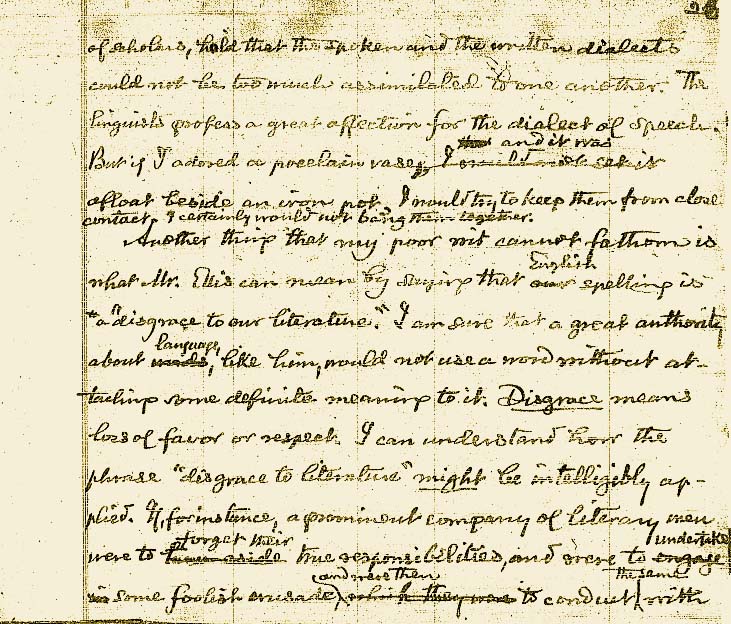 24
of scholars, hold that the spoken and the written dialects
could not be too much assimilated to one another. The
linguists profess a great affection for the dialect of speech.
and it was
But if I adored a porcelain vase, I would not set it
afloat beside an iron pot, I would try to keep them from close
contact, I certainly would not bring them together.
Another thing that my poor wit cannot fathom is
English
what Mr. Ellis can mean by saying that our spelling is
"a" disgrace to our literature." I am sure that a great authority
language,
about words, like him, would not use a word without at-
taching some definite meaning to it. Disgrace means
loss of favor or respect. I can understand how the
phrase "disgrace to literature" might be intelligibly ap-
plied. If, for instance, a prominent company of literary men
forget their undertake
were to turn aside true responsibilities, and were to engage
and were then the same
in some foolish crusade, which they were to conduct with